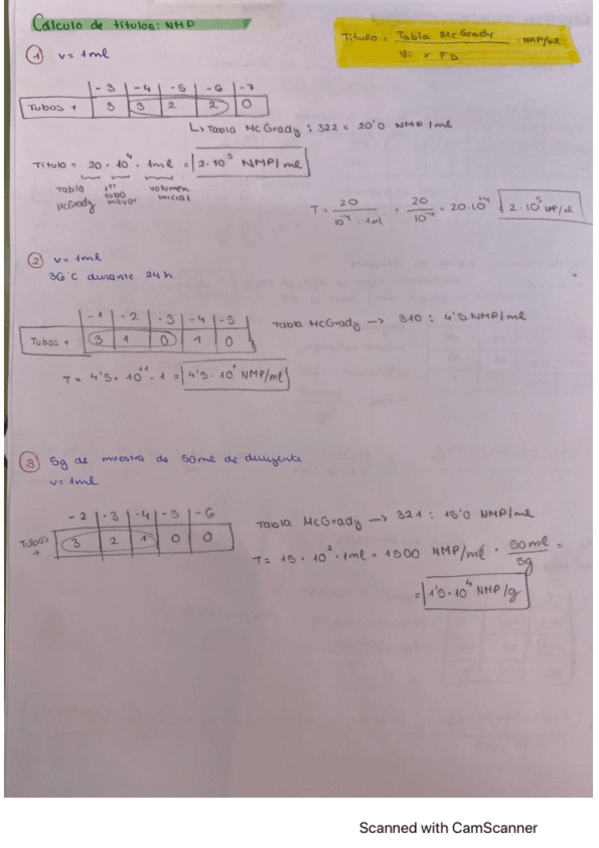 Cálculo de títulos: NMP
Título = Tabla McGrady / Vi x FD = NMP/ml
① v = 1ml
-3 | -4 | -5 | -6 | -7
Tubos + | 3 | 3 | 2 | 2 | 0
↳ Tabla McGrady : 322 = 20'0 NMP/ml
Título = 20 · 10⁴ · 1ml = 2·10⁵ NMP/ml
Tabla McGrady
tubo mayor
volumen inicial
T = 20 / 10⁻⁴ · 1ml = 20 / 10⁻⁴ = 20·10⁺⁴ 2·10⁵
② v = 1ml
36°C durante 24h
-1 | -2 | -3 | -4 | -5
Tubos + | 3 | 1 | 0 | 1 | 0
Tabla McGrady → 310 : 4'5 NMP/ml
T = 4'5 · 10⁺¹ · 1 = 4'5 · 10¹ NMP/ml
③ 5g de muestra de 50ml de diluyente
v = 1ml
-2 | -3 | -4 | -5 | -6
Tubos + | 3 | 2 | 1 | 0 | 0
Tabla McGrady → 321 : 15'0 NMP/ml
T = 15 · 10² · 1ml = 1500 NMP/ml · 50ml / 5g =
= 1'5·10⁴ NMP/g
Scanned with CamScanner